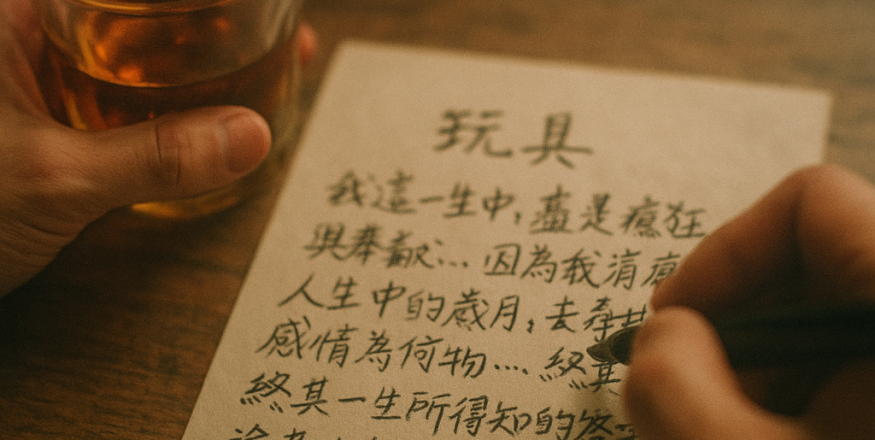 玩具
我這一生中,盡是瘋狂
與奉獻... 因為我清
人生中的歲月,去
感情為何物.... 終其
終其一生所得知的答